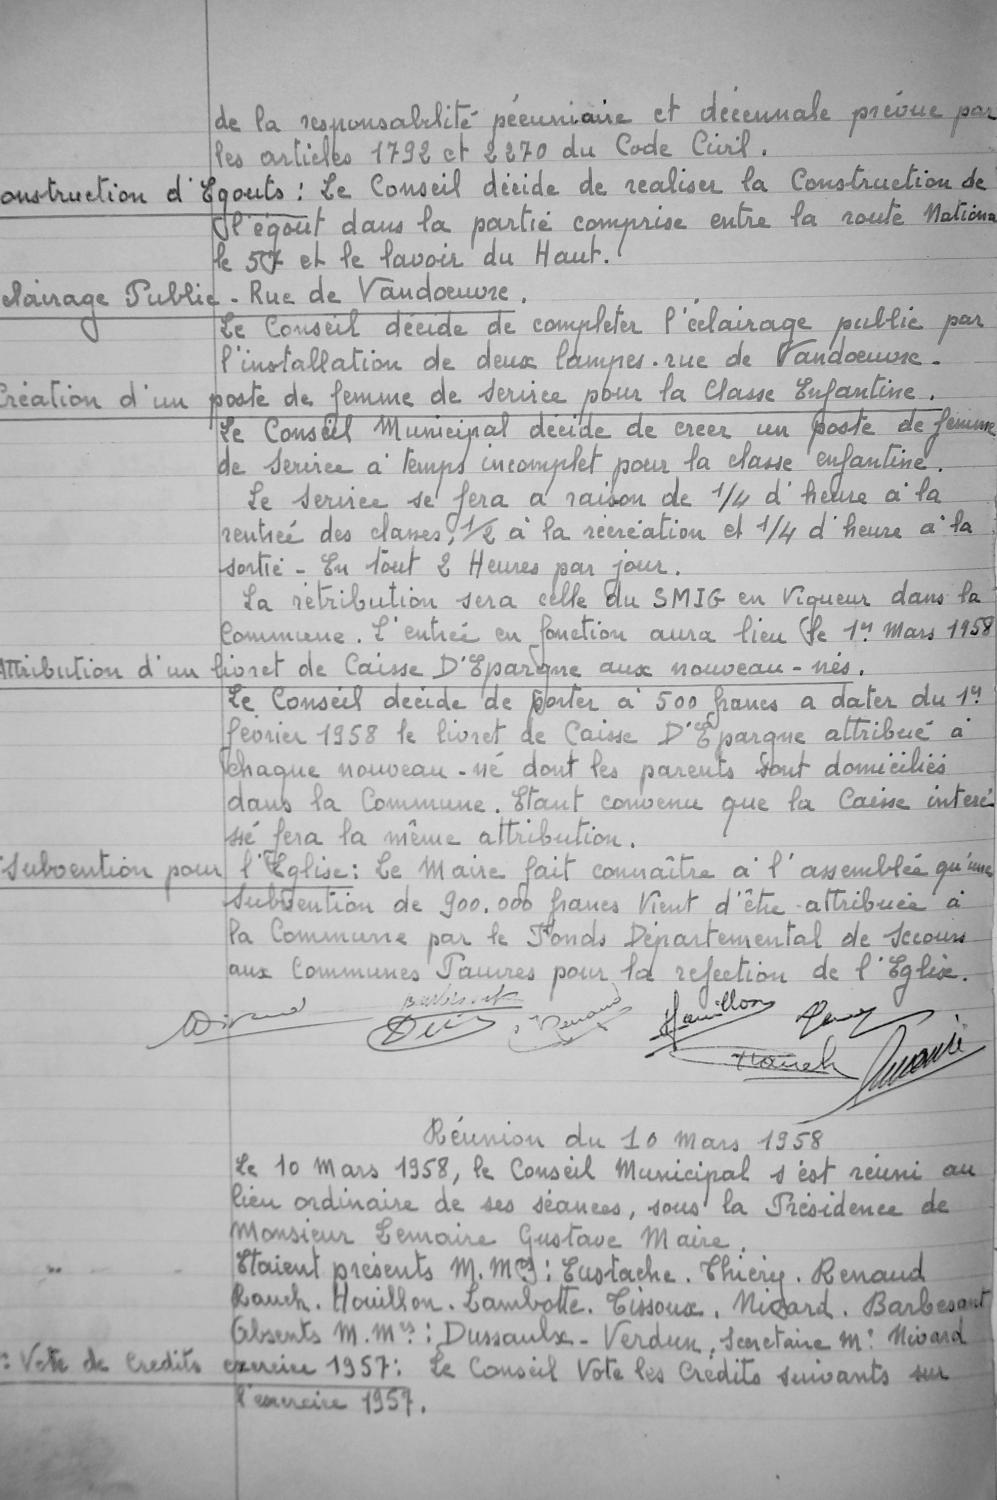 de la responsabilité pécuniaire et décennale prévue par
les articles 1792 et 2270 du Code Civil.
onstruction d'Egouts : Le Conseil décide de realiser la Construction de
l'égout dans la partié comprise entre la route Nationa
le 57 et le lavoir du Haut.
clairage Public - Rue de Vandoeuvre.
Le Conseil décide de completer l'éclairage public par
l'installation de deux lampes. rue de Vandoeuvre.
Création d'un poste de femme de Service pour la Classe Enfantine.
Le Conseil Municipal décide de creer un poste de femme
de Service à temps incomplet pour la classe enfantine.
Le Service se fera a raison de 1/4 d'heure à la
rentreé des classes, 1/2 à la récréation et 1/4 d'heure à la
sortié - En tout 2 Heures par jour.
La rétribution sera celle du SMIG en Vigueur dans la
Commune. L'entreé en fonction aura lieu le 1er Mars 1958
Attribution d'un livret de Caisse D'Epargne aux nouveau-nés.
Le Conseil décide de porter à 500 francs a dater du 1er
février 1958 le livret de Caisse D'Epargne attribué à
chaque nouveau-né dont les parents sont domiciliés
dans la Commune. Etant convenu que la Caisse interé
ssé fera la même attribution.
Subvention pour l'Eglise : Le Maire fait connaître à l'assembleé qu'une
Subvention de 900.000 francs Vient d'être attribuée à
la Commune par le Fonds Départemental de Secours
aux Communes Pauvres pour la refection de l'Eglise.
Barbesant
Renaud Houillon
Rauch
Réunion du 10 Mars 1958
Le 10 Mars 1958, le Conseil Municipal s'est réuni au
lieu ordinaire de ses séances, sous la Présidence de
Monsieur Lemaire Gustave Maire.
Etaient présents M.Mrs : Eustache. Thiéry. Renaud
Rauch. Houillon. Lambotte. Tissoux. Nivard. Barbesant
Absents M.Mrs : Dussaulx - Verdun, Secretaire Mr Nivard
: Vote de Credits exercice 1957 : Le Conseil Vote les Crédits suivants sur
l'exercice 1957.